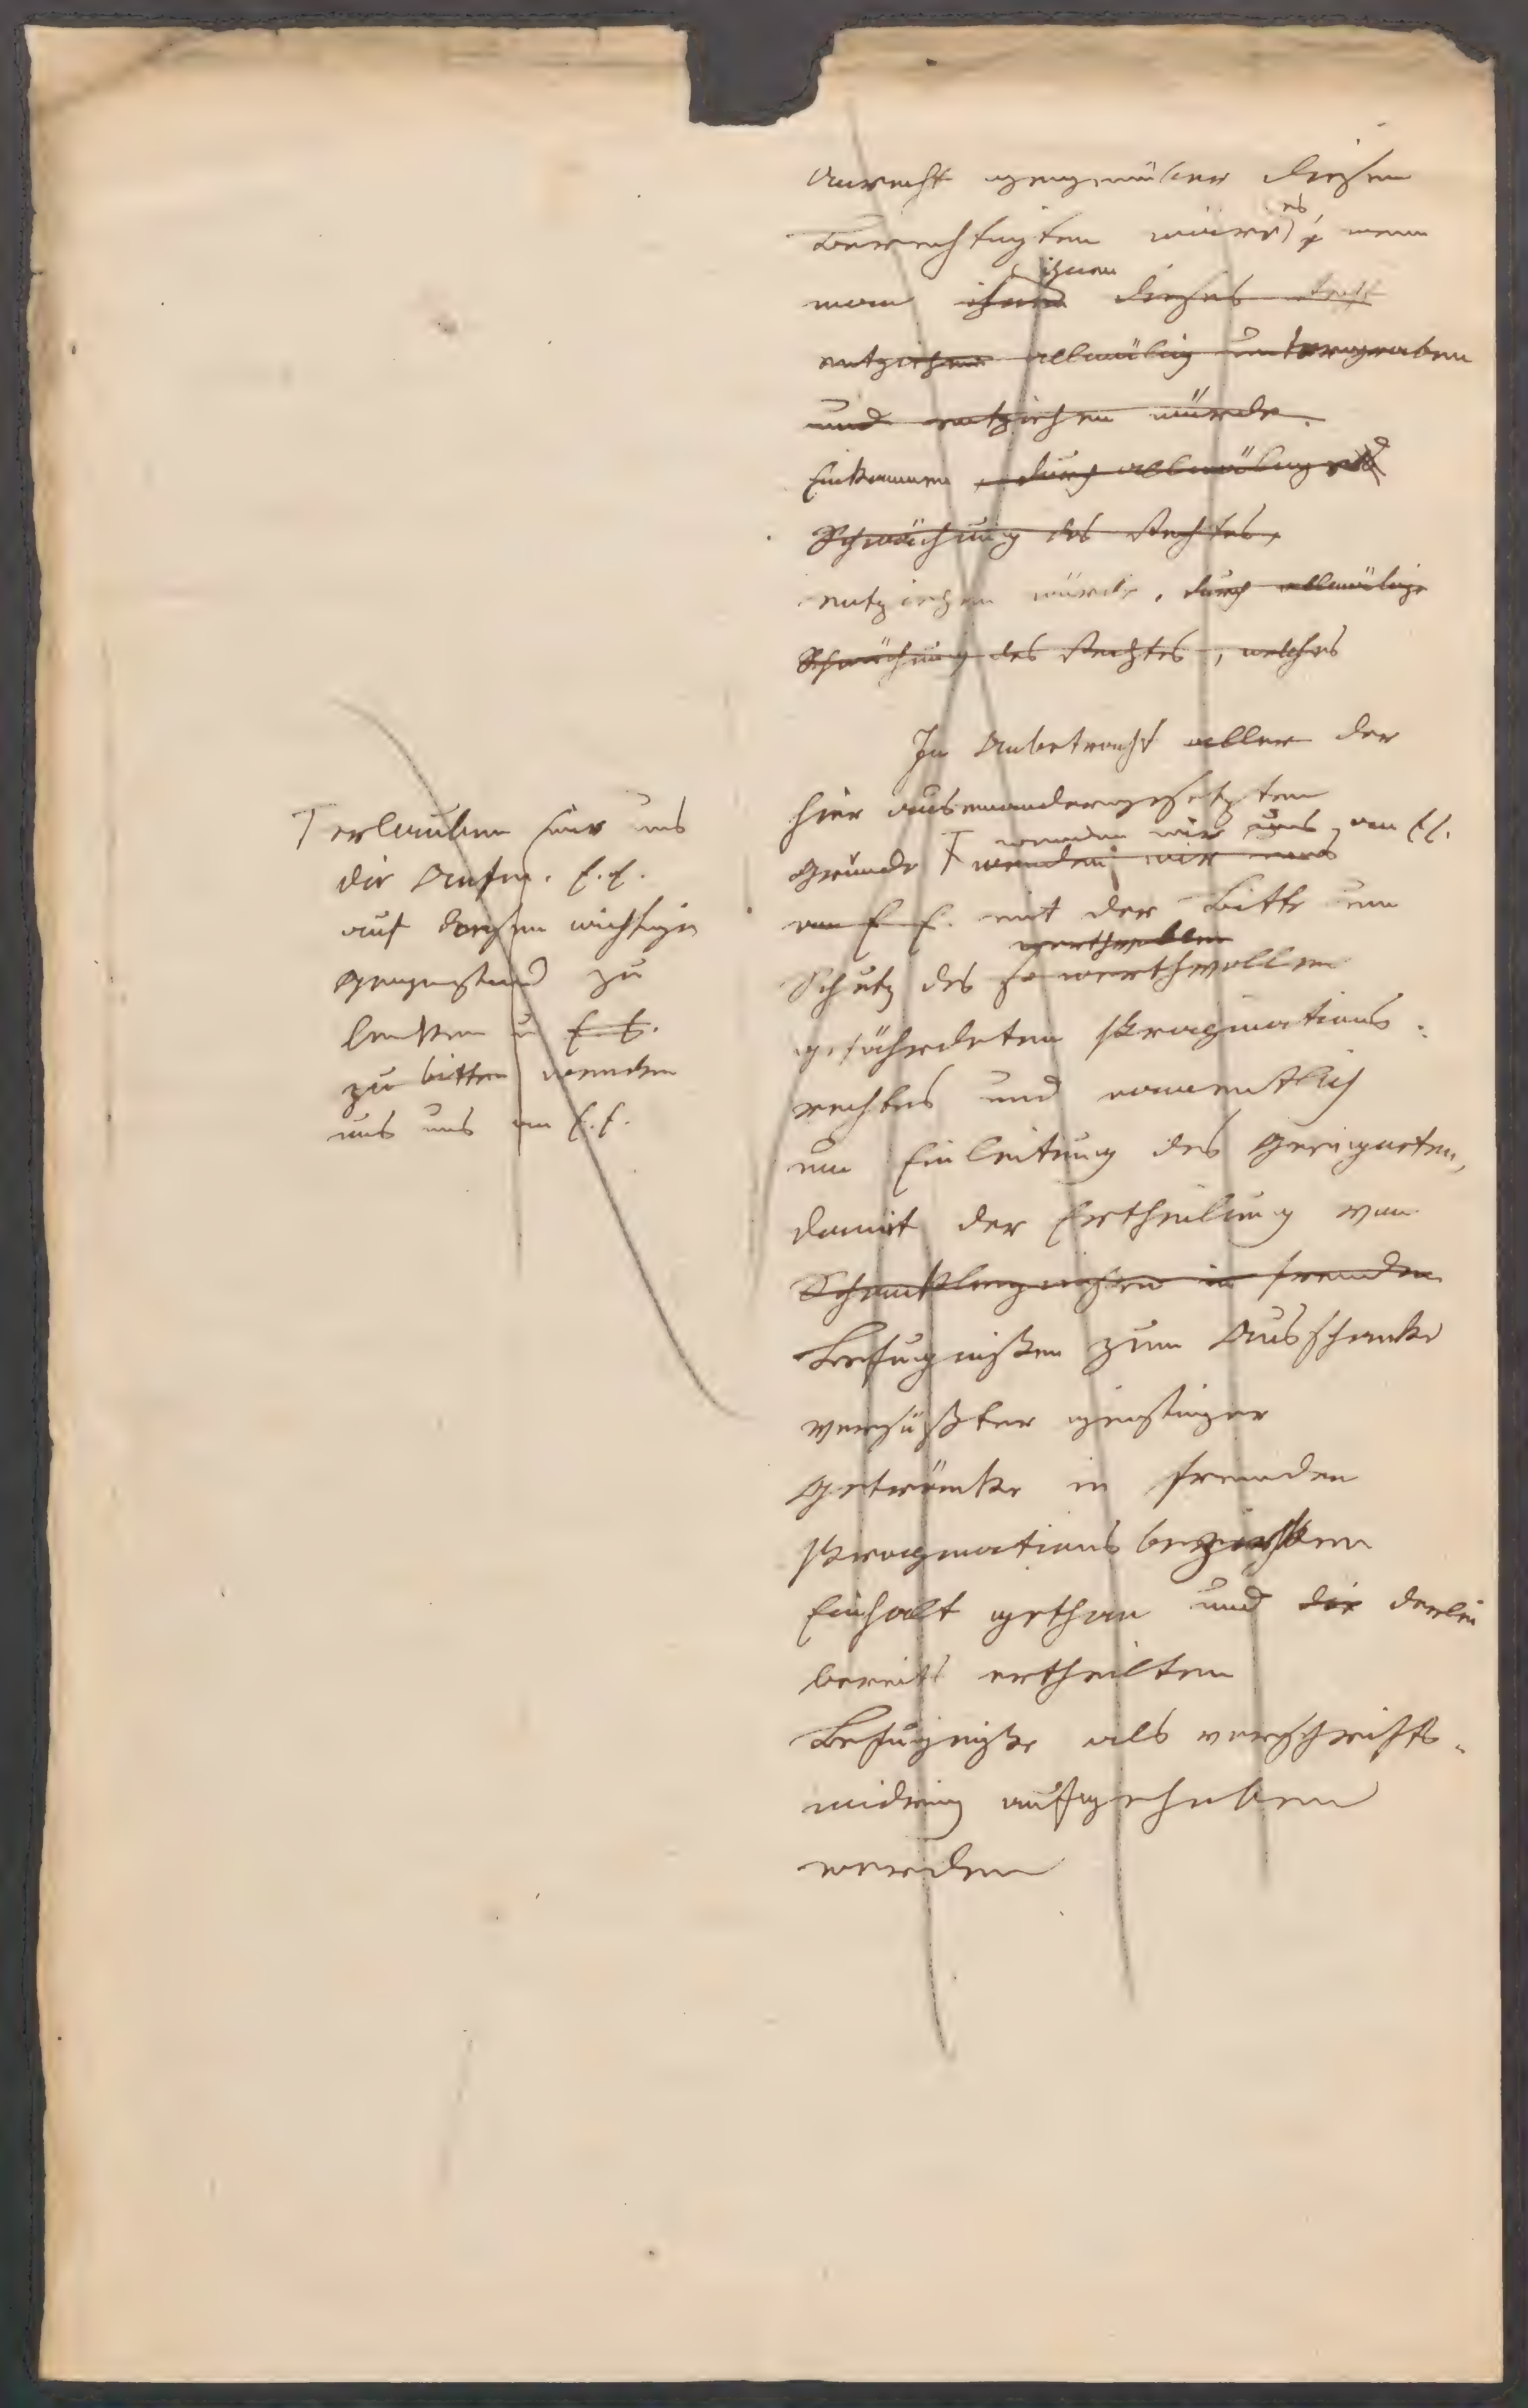 Unrecht gegenüber diesen
Berechtigten wäre es, wenn
man ihnen ihnen dieses
entziehen allmälig untergraben
und entziehen würde.
Einkommen, durch allmälige
Schwächung des Rechtes,
entziehen würde, durch allmälige
Schwächung des Rechtes, welches
In Anbetracht aller der
hier auseinandergesetzten
wenden wir uns an E.E.
Gründe wenden wir uns
an E E. mit der Bitte um
werthvollen
Schutz des so werthvollen
gefährdeten Propinations-
rechtes und namentlich
um Einleitung des Geeigneten,
damit der Ertheilung von
Schankbefugnissen in fremden
Befugnißen zum Ausschanke
versüßter geistiger
Getränke in fremden
Propinationsbezirken
Einhalt gethan und die derlei
bereits ertheilten
Befugniße als vorschrifts-
widrig aufgehoben
werden
erlauben wir uns
die Aufm. E.E.
auf diesen wichtigen
Gegenstand zu
lenken u E.E.
zu bitten wenden
uns uns an E.E.